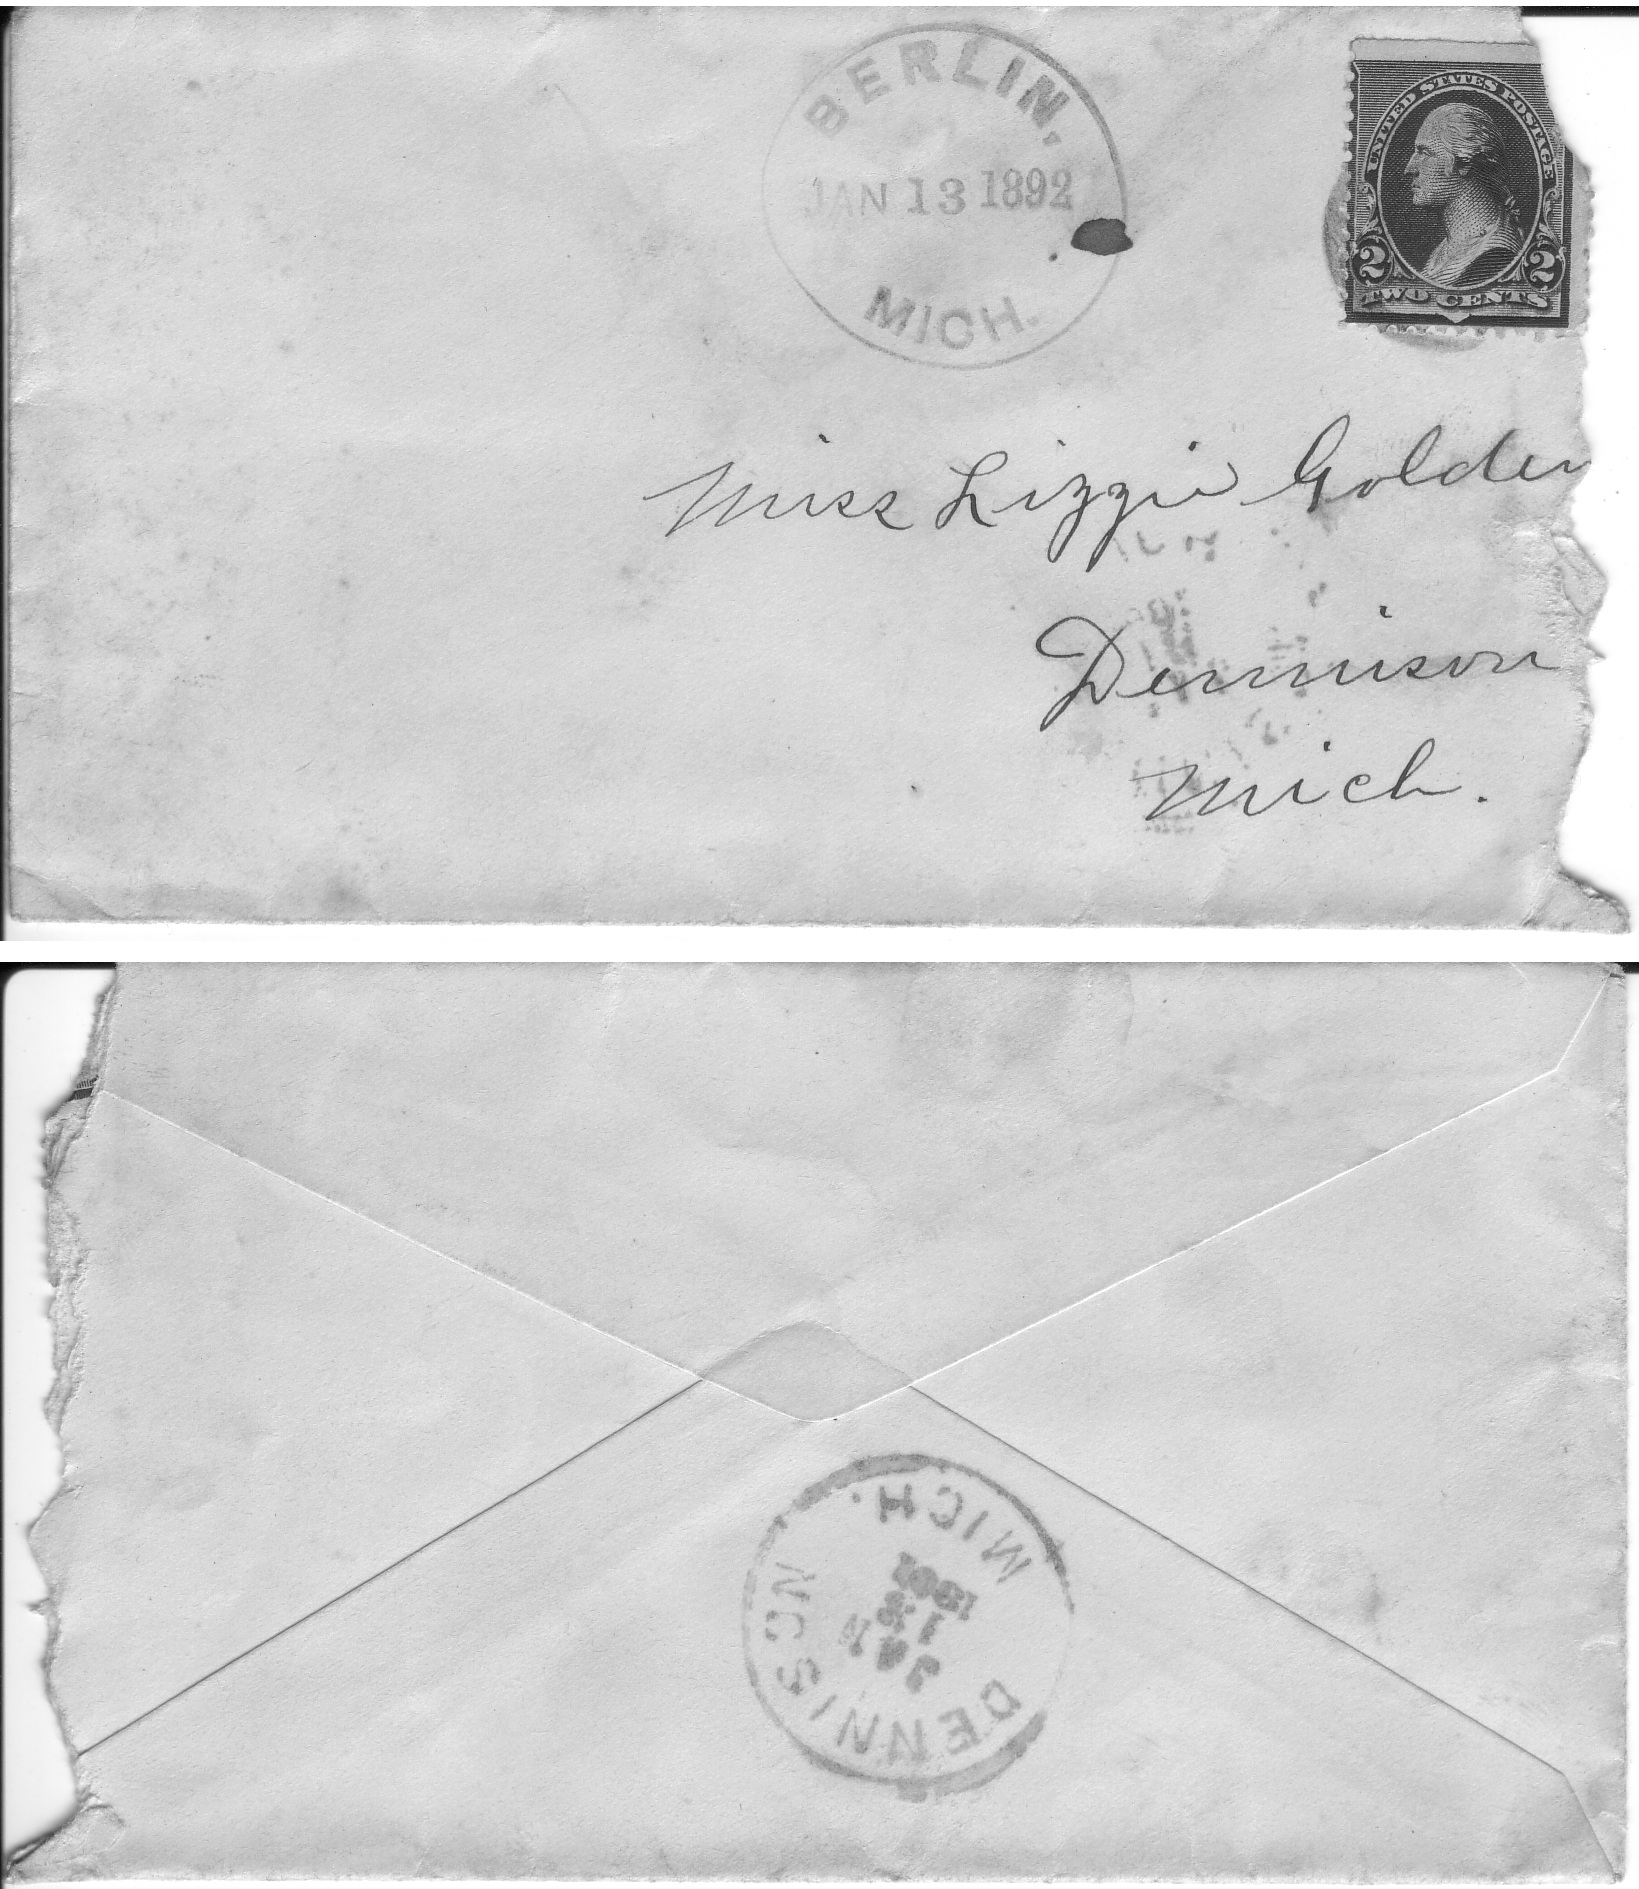 BERLIN,
JAN 13 1892
MICH.
UNITED STATES POSTAGE
2 2
TWO CENTS
Miss Lizzie Golden
Dennison
Mich.
DENNISON
MICH.